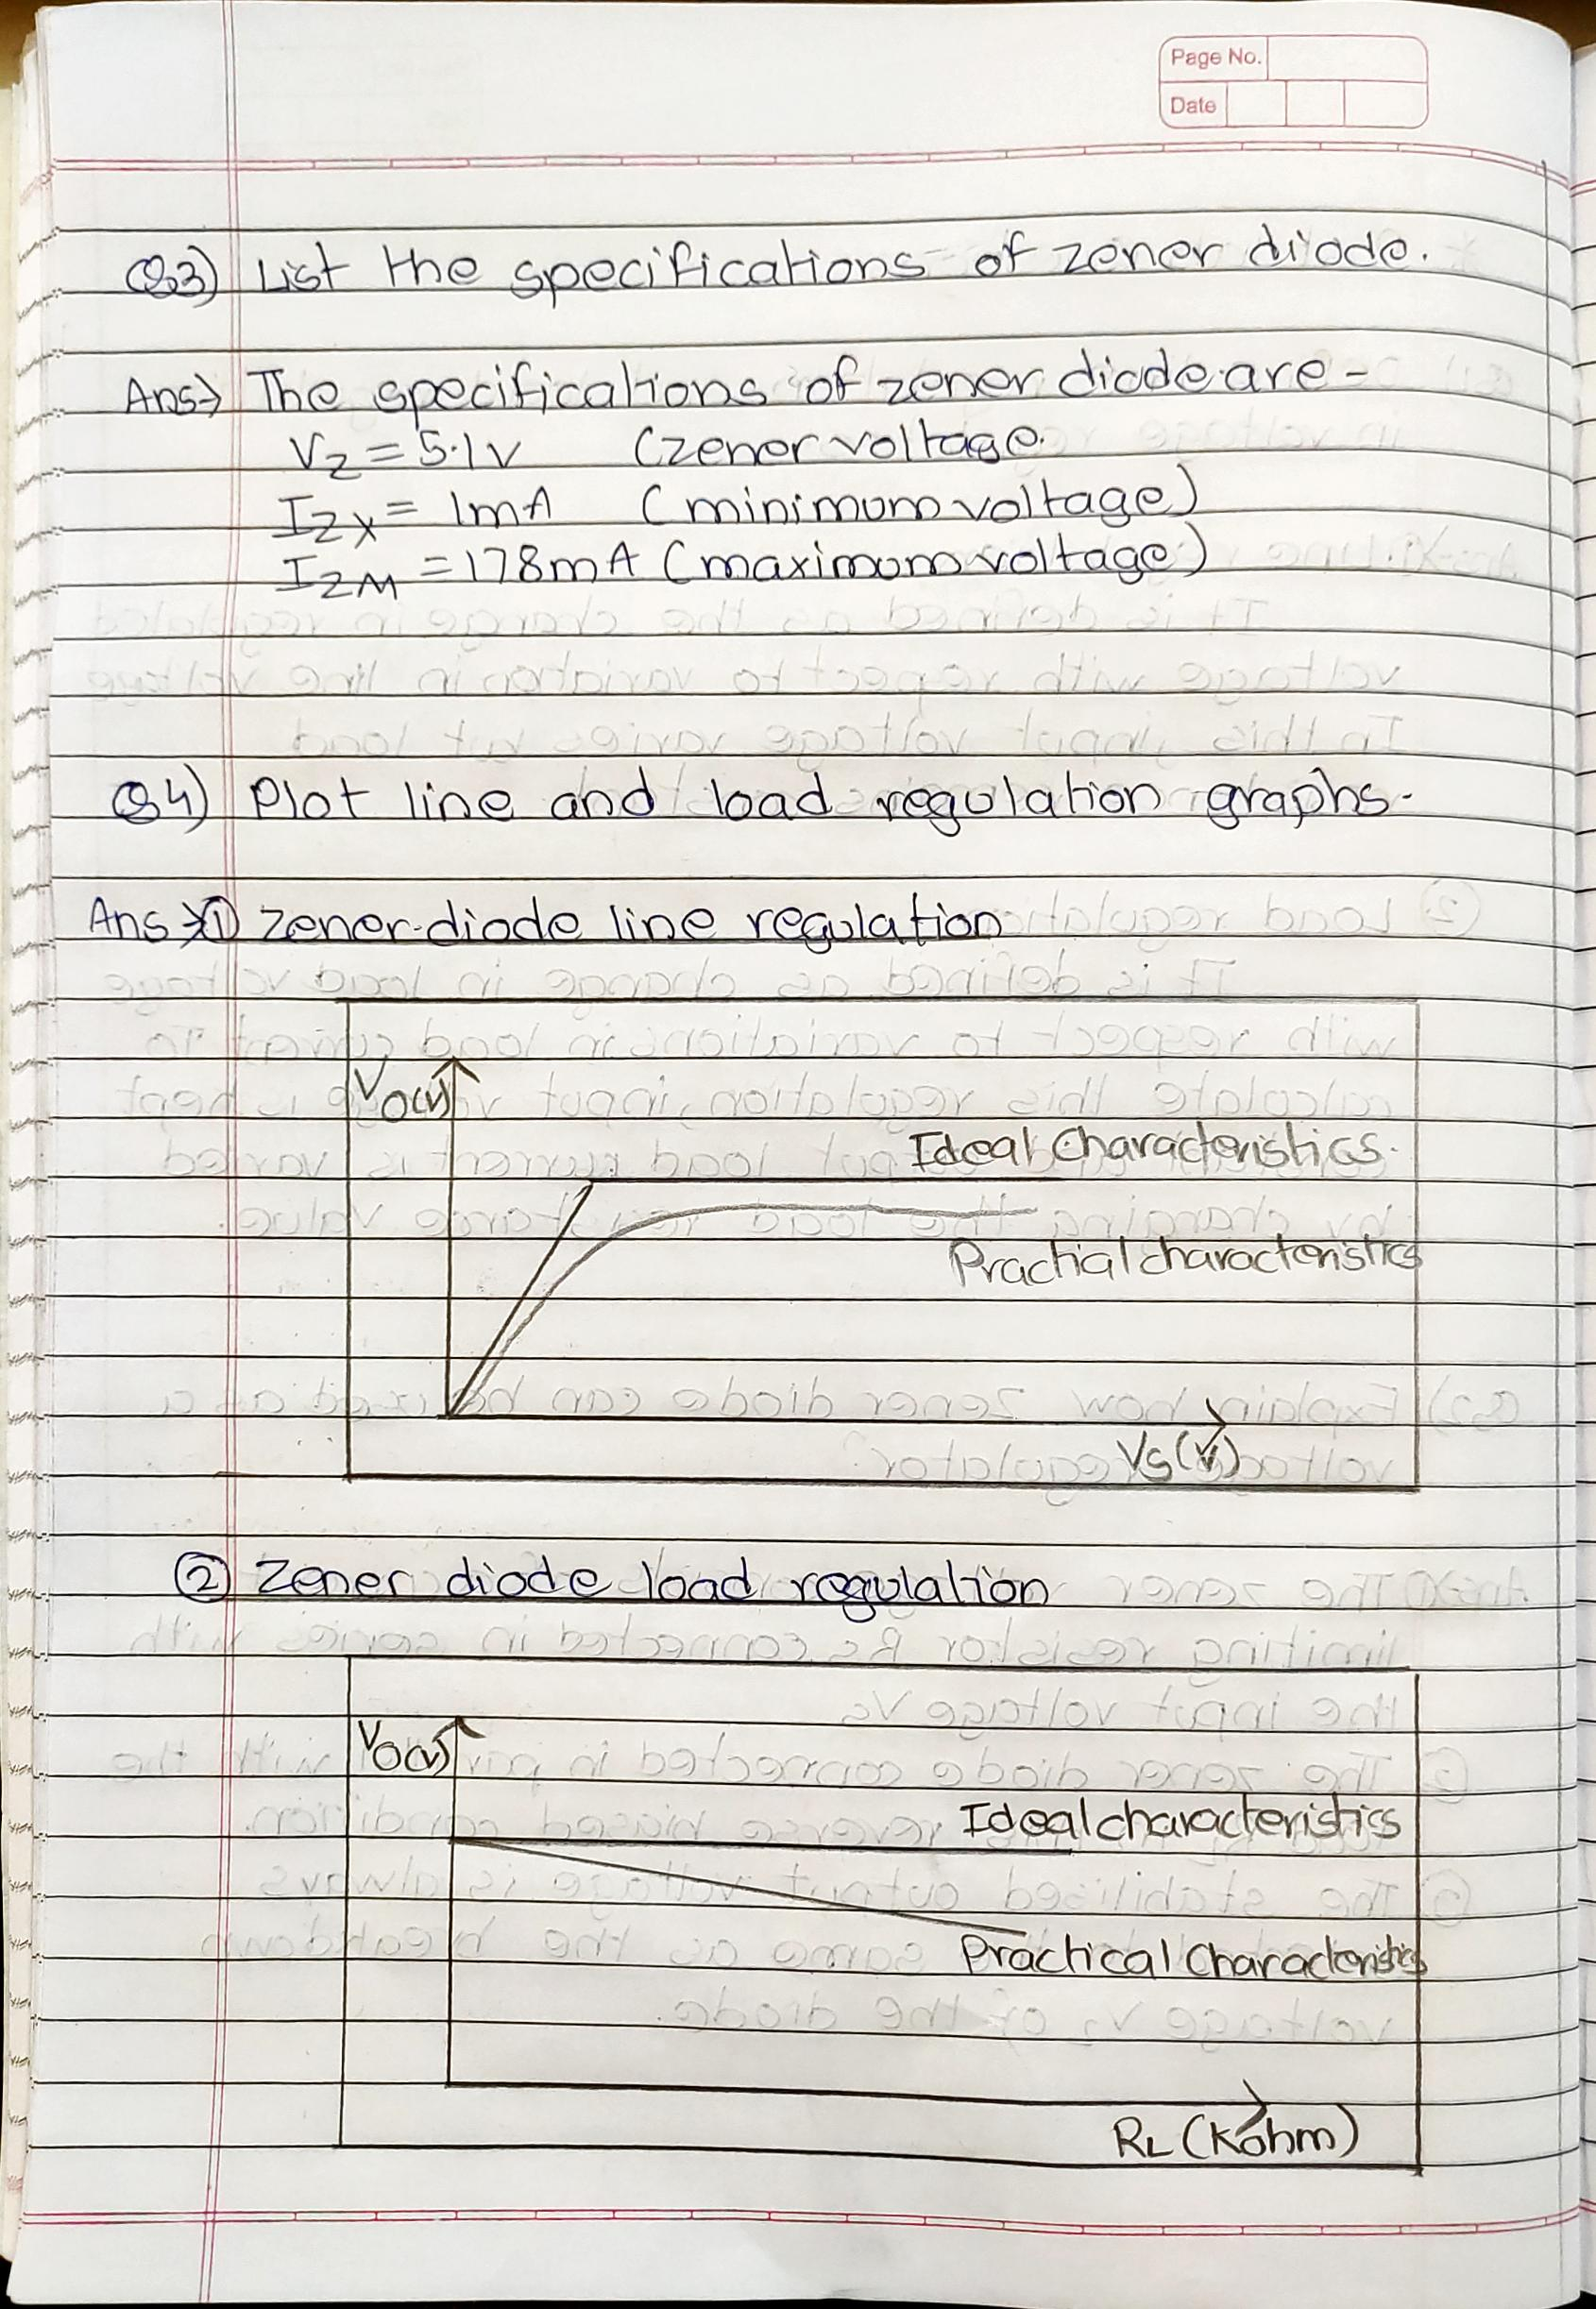 Page No.
Date
Q3) List the specifications of zener diode.
Ans→ The specifications of zener diode are -
VZ = 5.1v (zener voltage.
IZX = 1mA (minimum voltage)
IZM = 178mA (maximum voltage)
Q4) Plot line and load regulation graphs.
Ans→① zener diode line regulation
VO(v)
Ideal Characteristics.
Practial characteristics
VS(v)
② Zener diode load regulation
VO(v)
Ideal characteristics
Practical Characteristics
RL (Kohm)